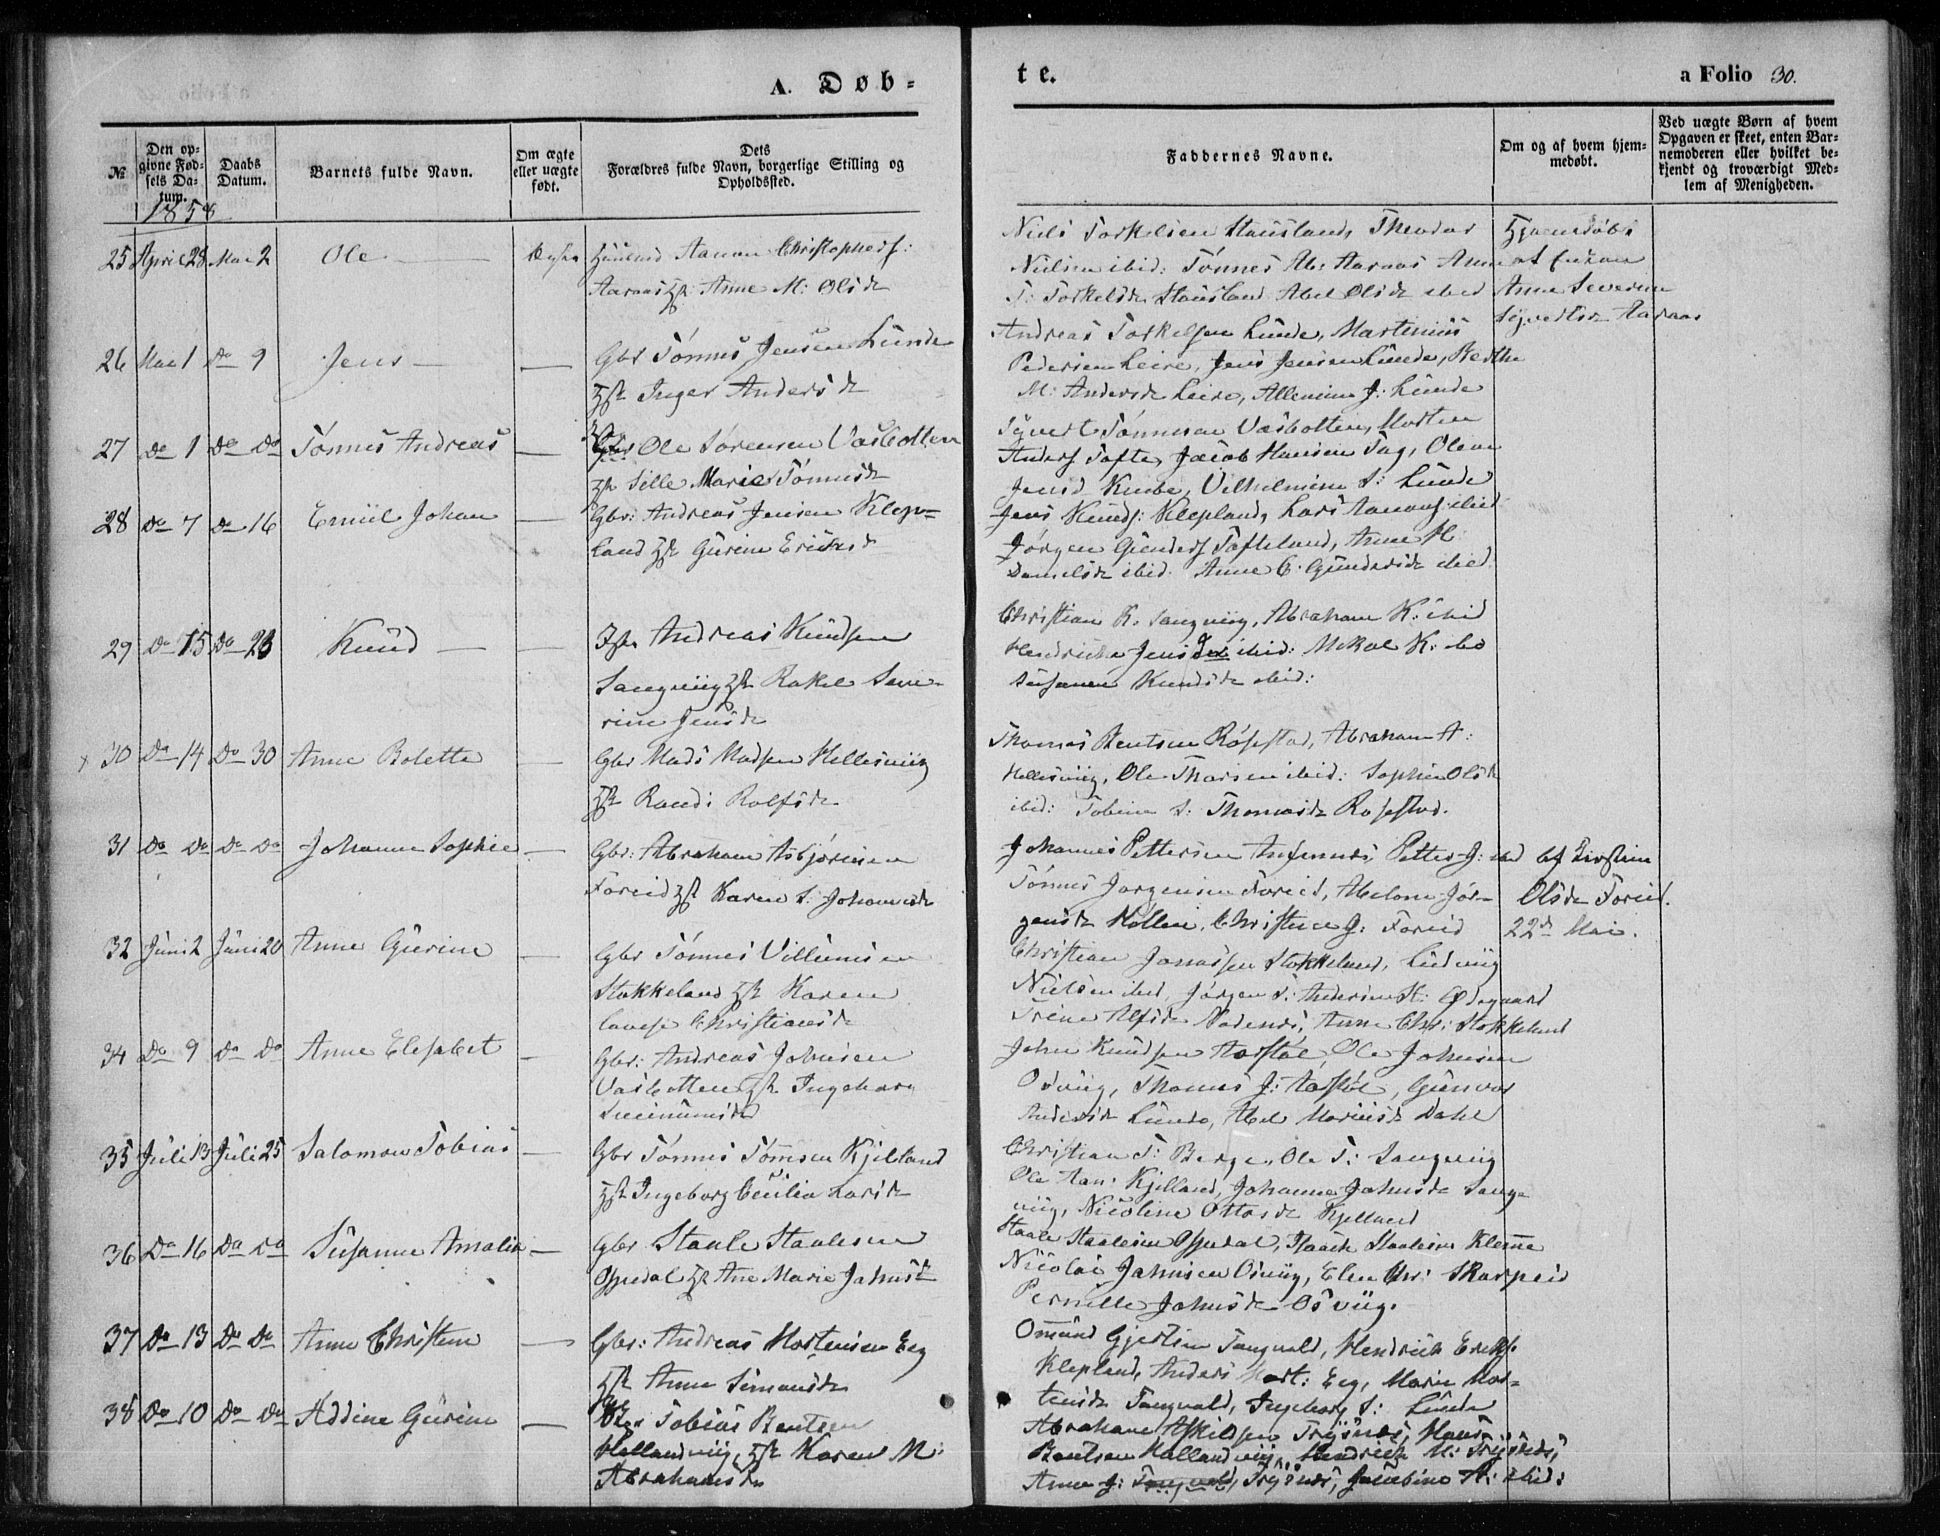 A. Døb-
te.
a Folio 30.
№
Den op-
givne Fød-
sels Da-
tum.
Daabs
Datum.
Barnets fulde Navn.
Om ægte
eller uægte
født.
Dets
Forældres fulde Navn, borgerlige Stilling og
Opholdssted.
Faddernes Navne.
Om og af hvem hjem-
medøbt.
Ved uægte Børn af hvem
Opgaven er skeet, enten Bar-
nemoderen eller hvilket be-
kjendt og troværdigt Med-
lem af Menigheden.
1858
25 April 28 Mai 2 Ole Aanon Christophers:
Aaraas Anne M: Olsdr
Niels Torkelsen Stausland, Theodor
Nielsen ibid: Tønnes Aaraas Anne
T: Torkelsdr Stausland Abel Olsdr ibid
Hjemmedøbt
af Enken
Anne Severine
Syvertsdr Aaraas
26 Mai 1 Do 9 Jens — Gbr Tønnes Jensen Lunde
Inger Andersdr
Andreas Torkelsen Lunde, Martinius
Pedersen Leire, Jens Jensen Lunde, Berthe
M: Andersdr Leire, J: Lunde
27 Do 1 Do Do Tønnes Andreas — Ole Sørensen Vasbotten
Sille Marie Tønnesdr
Syvert Tønnesen Vasbotten, Morten
Anders Tofte, Jacob Hansen Tag, Olene
Jensd Vilhelmine S: Lunde
28 Do 7 Do 16 Emil Johan — Gbr: Andreas Jensen Klep-
land Gurine Ericksd
Jens Knuds: Klepland, Lars Aanons ibid
Jørgen Gunders Tofteland, Anne M:
Danielsdr ibid. Anne C. Gundersdr ibid
29 Do 15 Do 23 Knud — — Andreas Knudsen
Sangviig Rakel Seve-
rine Jensdr
Christian K. Sangviig, Abraham K: ibid
Jensdtr ibid: Mikal K:
Susanne Knudsdr ibid:
x 30 Do 14 Do 30 Anne Bolette — Gbr Mads Madsen Hellesviig
Randi Rolfsdr
Thomas Bentsen Røsestad, Abraham A:
Hellesviig, Ole Tharsen ibid: Sophie Olsdr
ibid: Tobine S: Thomasdr Rosestad.
31 Do Do Do Do Johanne Sophie — Gbr: Abraham Asbjørnsen
Foreid Karen S: Johannesdr
Johannes Pettersen Petter J: ibid
Tønnes Jørgensen Foreid, Abelone Jør-
gensdr Høllen, Christine J: Foreid
af Kirstine
Olsdr Foreid.
22de Mai.
32 Juni 2 Juni 20 Anne Gurine — Gbr Tønnes Villumsen
Stokkeland Karen
Lovise Christiansdr
Christian Jonassen Stokkeland, Ludvig
Nielsen ibid, Jørgen S: Ødegaard
Trine Alfsdr Nodenes, Anne Chr: Stokkeland
34 Do 9 Do Do Anne Elesabet — Gbr: Andreas Johnsen
Vasbotten Ingeborg
John Knudsen Aastøl, Ole Johnsen
Osviig, Thomas J: Aastøl, Gunvor
Andersdr Lunde, Abel Dahl
35 Juli 13 Juli 25 Salomon Tobias — Gbr Tønnes Tømsen Kjelland
Ingeborg Cecilia Larsdr
Christian T: Berge, Ole T: Sangviig
Ole Aan: Kjelland, Johanne Jahnsdr Sang-
viig, Nicoline Ottosdr Kjelland
36 Do 16 Do Do Susanne Amalia — Gbr Staale Staalesen
Opsedal Ane Marie Jahnsdr
Staale Staalesen Opsedal, Isaach Staalesen Kleme
Nicolai Jahnsen Osviig, Elen Chr: Skarpeid
Pernille Johnsdr Osviig.
37 Do 13 Do Do Anne Christine — Gbr: Andreas Mortensen Eeg
Anne Simonsdr
Omund Gjertsen Tangvald, Hendrich Ericks.
Klepland, Anders Mort: Eeg, Marie Mor-
tensdr Tangvald, Ingeborg S: Lunde
38 Do 10 Do Do Addine Gurine — Tobias Bentsen
Hallandviig, Karen M:
Abrahamsdr
Abraham Askildsen Trysnes, Hans
Bentsen Hallandviig, Hendrich M: Trysnes,
Anne J: Trysnes, Jacobine A: ibid: